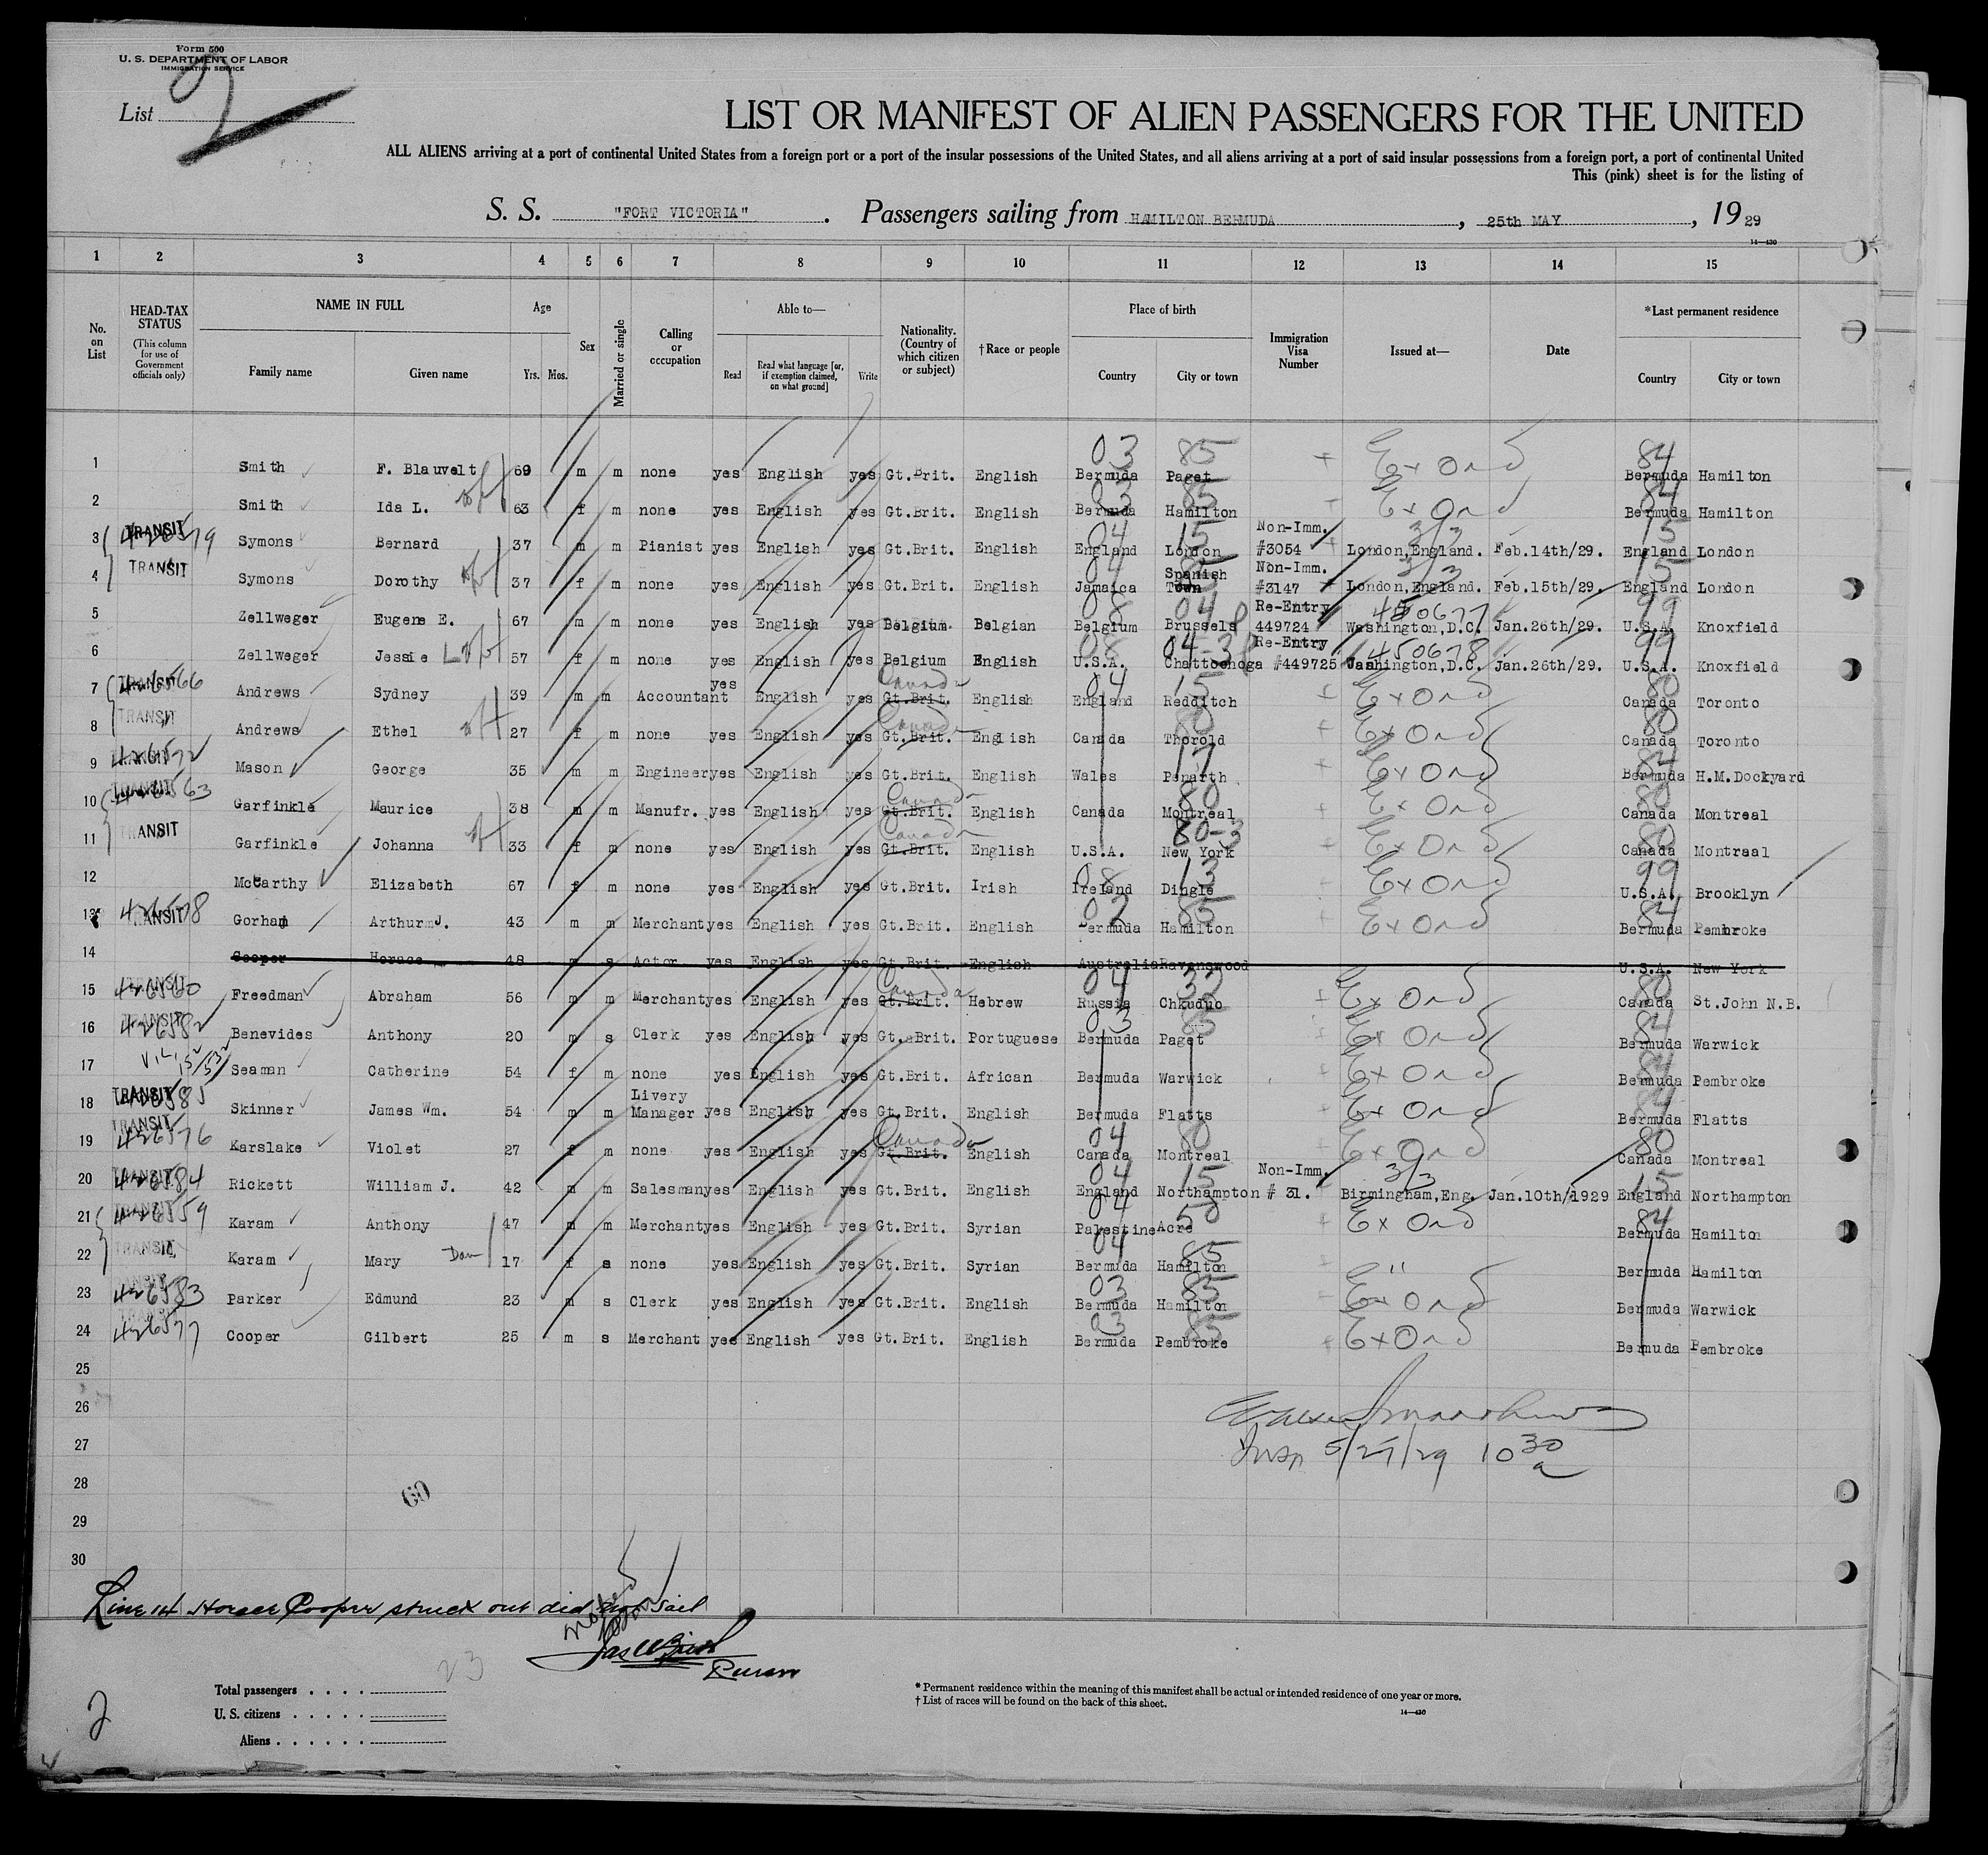 Form 500
U. S. DEPARTMENT OF LABOR
IMMIGRATION SERVICE
List 2
LIST OR MANIFEST OF ALIEN PASSENGERS FOR THE UNITED
ALL ALIENS arriving at a port of continental United States from a foreign port or a port of the insular possessions of the United States, and all aliens arriving at a port of said insular possessions from a foreign port, a port of continental United
This (pink) sheet is for the listing of
S. S. "FORT VICTORIA". Passengers sailing from HAMILTON BERMUDA, 25th MAY, 19 29
14—430
1 2 3 4 5 6 7 8 9 10 11 12 13 14 15
No. on List
HEAD-TAX STATUS (This column for use of Government officials only)
NAME IN FULL
Family name Given name
Age Yrs. Mos.
Sex
Married or single
Calling or occupation
Able to—
Read Read what language [or, if exemption claimed, on what ground] Write
Nationality. (Country of which citizen or subject)
†Race or people
Place of birth
Country City or town
Immigration Visa Number
Issued at—
Date
*Last permanent residence
Country City or town
03 85 84
1 Smith F. Blauvelt 69 m m none yes English yes Gt.Brit. English Bermuda Paget Ex Ord Bermuda Hamilton
03 85 84
2 Smith Ida L. 63 f m none yes English yes Gt.Brit. English Bermuda Hamilton Ex Ord Bermuda Hamilton
TRANSIT 04 15 Non-Imm. 3/3 15
3 Symons Bernard 37 m m Pianist yes English yes Gt.Brit. English England London #3054 London,England. Feb.14th/29. England London
TRANSIT 04 Spanish Non-Imm. 3/3 15
4 Symons Dorothy 37 f m none yes English yes Gt.Brit. English Jamaica Town #3147 London,England. Feb.15th/29. England London
08 04 Re-Entry 450677 99
5 Zellweger Eugene E. 67 m m none yes English yes Belgium Belgian Belgium Brussels 449724 Washington,D.C. Jan.26th/29. U.S.A. Knoxfield
08 04-3 Re-Entry 450678 99
6 Zellweger Jessie 57 f m none yes English yes Belgium English U.S.A. Chattoohoga #449725 Washington,D.C. Jan.26th/29. U.S.A. Knoxfield
TRANSIT 426566 yes Canada 04 15 80
7 Andrews Sydney 39 m m Accountant English yes Gt.Brit. English England Redditch Ex Ord Canada Toronto
TRANSIT Canada 80 80
8 Andrews Ethel 27 f m none yes English yes Gt.Brit. English Canada Thorold Ex Ord Canada Toronto
426572 17 84
9 TRANSIT Mason George 35 m m Engineer yes English yes Gt.Brit. English Wales Penarth Ex Ord Bermuda H.M.Dockyard
TRANSIT 426563 Canada 80 80
10 Garfinkle Maurice 38 m m Manufr. yes English yes Gt.Brit. English Canada Montreal Ex Ord Canada Montreal
TRANSIT Canada 80-3 80
11 Garfinkle Johanna 33 f m none yes English yes Gt.Brit. English U.S.A. New York Ex Ord Canada Montreal
08 13 99
12 McCarthy Elizabeth 67 f m none yes English yes Gt.Brit. Irish Ireland Dingle Ex Ord U.S.A. Brooklyn
426578 TRANSIT 02 85 84
13 Gorham Arthur J. 43 m m Merchant yes English yes Gt.Brit. English Bermuda Hamilton Ex Ord Bermuda Pembroke
14 Cooper Horace 48 m s Actor yes English yes Gt.Brit. English Australia Ravenswood U.S.A. New York
TRANSIT 426560 Canada 04 32 80
15 Freedman Abraham 56 m m Merchant yes English yes Gt.Brit. Hebrew Russia Chkuduo Ex Ord Canada St.John N.B.
TRANSIT 426582 03 85 84
16 Benevides Anthony 20 m s Clerk yes English yes Gt.Brit. Portuguese Bermuda Paget Ex Ord Bermuda Warwick
84
17 Seaman Catherine 54 f m none yes English yes Gt.Brit. African Bermuda Warwick Ex Ord Bermuda Pembroke
TRANSIT 426585 Livery 84
18 Skinner James Wm. 54 m m Manager yes English yes Gt.Brit. English Bermuda Flatts Ex Ord Bermuda Flatts
TRANSIT 426576 Canada 04 80 80
19 Karslake Violet 27 f m none yes English yes Gt.Brit. English Canada Montreal Ex Ord Canada Montreal
TRANSIT 426584 04 15 Non-Imm. 3/3 15
20 Rickett William J. 42 m m Salesman yes English yes Gt.Brit. English England Northampton # 31. Birmingham,Eng. Jan.10th/1929 England Northampton
TRANSIT 426559 04 50 84
21 Karam Anthony 47 m m Merchant yes English yes Gt.Brit. Syrian Palestine Acre Ex Ord Bermuda Hamilton
TRANSIT 04 85
22 Karam Mary Dau 17 f s none yes English yes Gt.Brit. Syrian Bermuda Hamilton " Bermuda Hamilton
TRANSIT 426583 03 85
23 Parker Edmund 23 m s Clerk yes English yes Gt.Brit. English Bermuda Hamilton Ex Ord Bermuda Warwick
TRANSIT 426577 03 85
24 Cooper Gilbert 25 m s Merchant yes English yes Gt.Brit. English Bermuda Pembroke Ex Ord Bermuda Pembroke
25
26
27 Insp 5/27/29 10 30 a
28
60
29
30
Line 14 Horace Cooper struck out did not sail
Purser
23
Total passengers
U. S. citizens
Aliens
2
* Permanent residence within the meaning of this manifest shall be actual or intended residence of one year or more.
† List of races will be found on the back of this sheet.
14—430